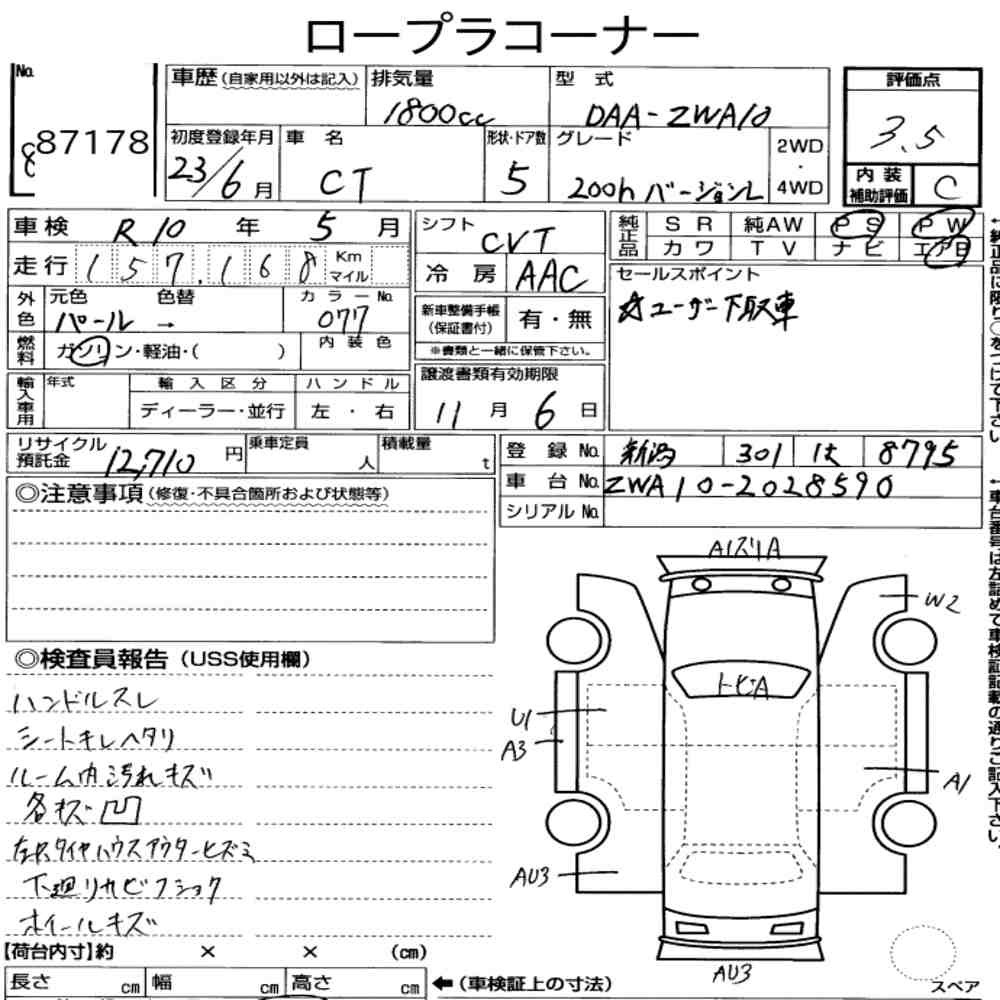 ロープラコーナー
No. 87178
車歴(自家用以外は記入) 排気量 1800cc 型式 DAA-ZWA10
評価点 3.5
内装補助評価 C
初度登録年月 23/6月 車名 CT 形状・ドア数 5 グレード 200h バージョンL 2WD・4WD
車検 R10年 5月
走行 157,168 Km マイル
外色 元色 パール 色替 → カラーNo. 077
燃料 ガソリン・軽油・( ) 内装色
輸入車用 年式 輸入区分 ディーラー・並行 ハンドル 左・右
シフト CVT
冷房 AAC
新車整備手帳(保証書付) 有・無
※書類と一緒に保管下さい。
譲渡書類有効期限
11月 6日
純正品 SR 純AW PS PW
カワ TV ナビ エアB
セールスポイント
☆ユーザー下取車
リサイクル預託金 12,710円 乗車定員 人 積載量 t
登録No. 新潟 301 は 8795
車台No. ZWA10-2028590
シリアルNo.
◎注意事項(修復・不具合箇所および状態等)
◎検査員報告(USS使用欄)
ハンドルスレ
シートキレヘタリ
ルーム内汚れキズ
各キズ凹
左Rタイヤハウスアウターヒズミ
下廻りサビフショク
ホイールキズ
A1ズリA
W2
トビA
U1
A3
A1
AU3
AU3
スペア
【荷台内寸】約 × × (cm)
長さ cm 幅 cm 高さ cm ←(車検証上の寸法)
←純正品に限り○をつけて下さい。
←車台番号は左詰めで車検証記載の通りご記入下さい。